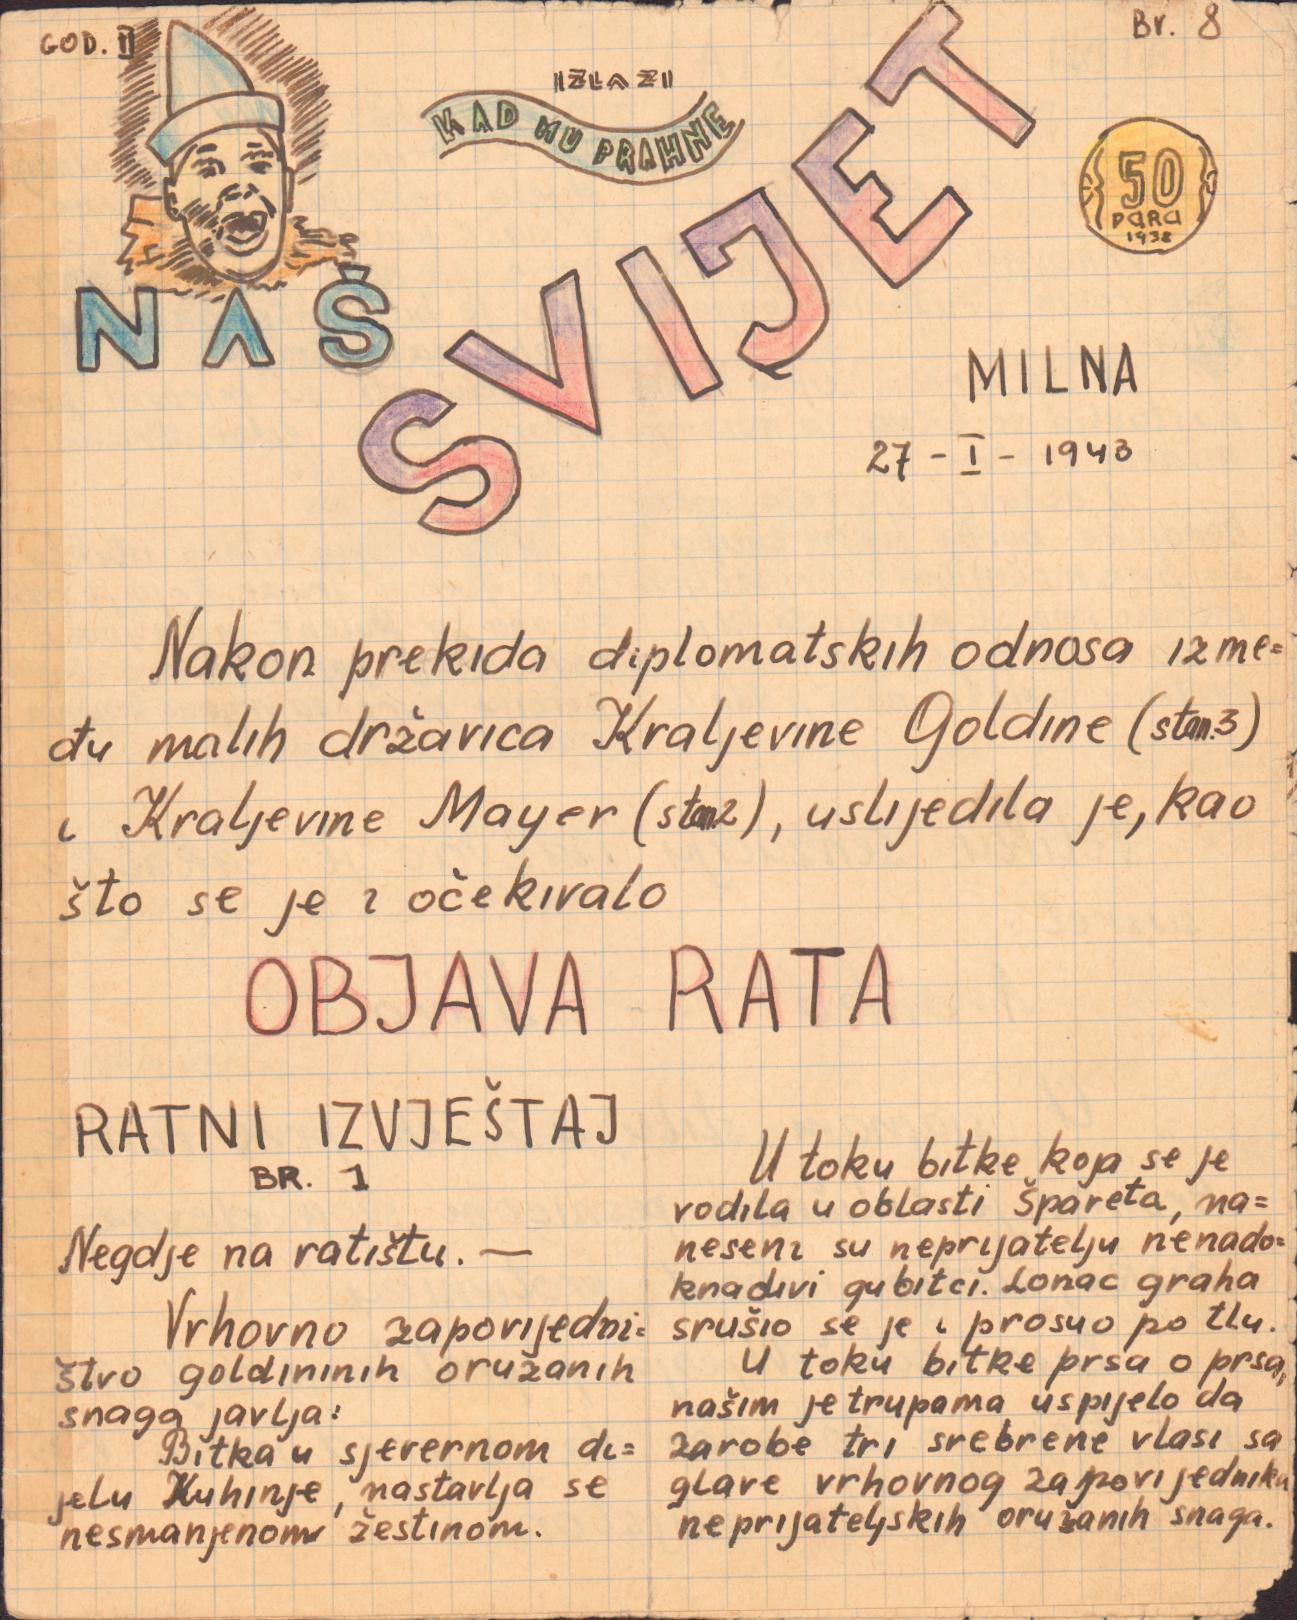 GOD. II
Br. 8
IZLAZI
KAD MU PRAHNE
NAŠ
SVIJET
50
PARA
1938
MILNA
27 - I - 1943
Nakon prekida diplomatskih odnosa izme=
đu malih državica Kraljevine Goldine (stan.3)
i Kraljevine Mayer (stan2), uslijedila je, kao
što se je i očekivalo
OBJAVA RATA
RATNI IZVJEŠTAJ
BR. 1
Negdje na ratištu. —
Vrhovno zapovijedni=
štvo goldininih oružanih
snaga javlja:
Bitka u sjevernom di=
jelu Kuhinje, nastavlja se
nesmanjenom žestinom.
U toku bitke koja se je
vodila u oblasti Špareta, na=
neseni su neprijatelju nenado=
knadivi gubitci. Lonac graha
srušio se je i prosuo po tlu.
U toku bitke prsa o prsa,
našim je trupama uspijelo da
zarobe tri srebrene vlasi sa
glave vrhovnog zapovijednika
neprijateljskih oružanih snaga.